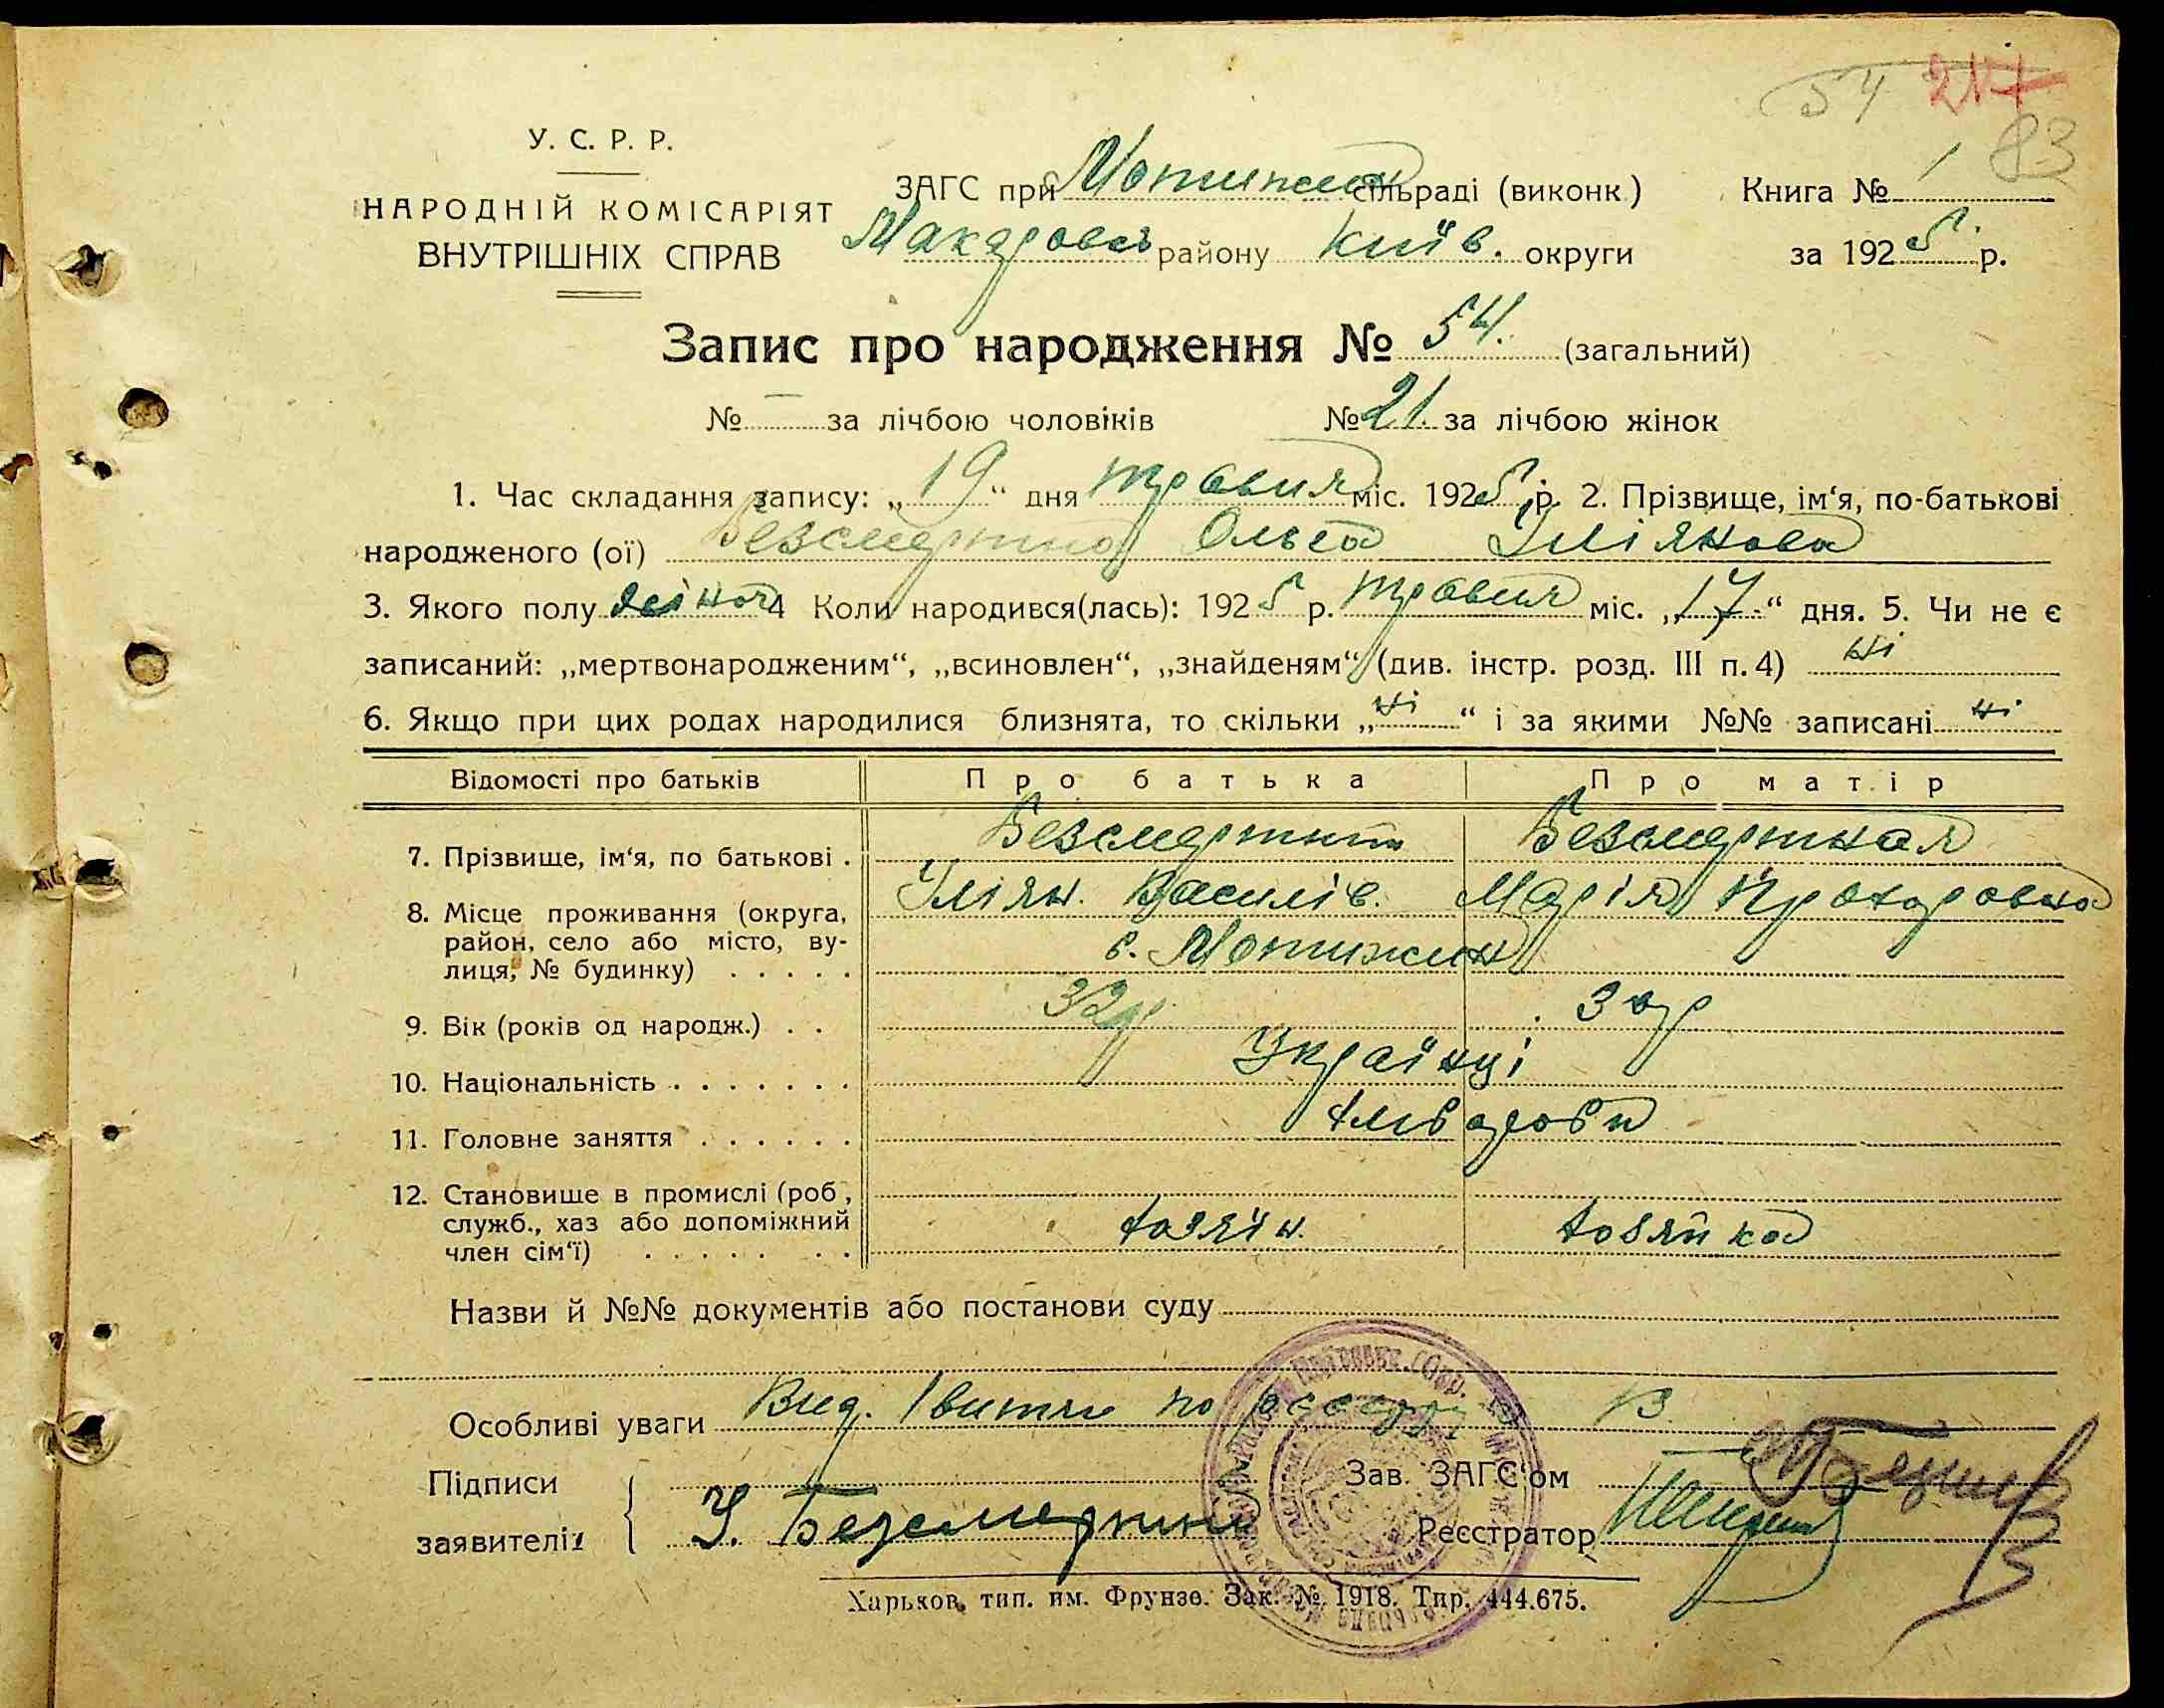 54 217
83
У. С. Р. Р.
НАРОДНІЙ КОМІСАРІЯТ
ВНУТРІШНІХ СПРАВ
ЗАГС при Мотижин сільраді (виконк.)
Макаровск району Київ. округи
Книга № 1
за 1925 р.
Запис про народження № 54. (загальний)
№ — за лічбою чоловіків № 21. за лічбою жінок
1. Час складання запису: „19“ дня травня міс. 1925 р. 2. Прізвище, ім‘я, по-батькові
народженого (ої) Безсмертна Ольга Уліянова
3. Якого полу жіноч 4 Коли народився(лась): 1925 р. травня міс. „17“ дня. 5. Чи не є
записаний: „мертвонародженим“, „всиновлен“, „знайденям“ (див. інстр. розд. III п. 4) ні
6. Якщо при цих родах народилися близнята, то скільки „ні“ і за якими №№ записані ні
Відомості про батьків Про батька Про матір
7. Прізвище, ім‘я, по батькові . Безсмертний Безсмертная
Уліян. Василів. Марія Прохоровна
8. Місце проживання (округа,
район, село або місто, ву-
лиця, № будинку) . . . . . с. Мотижин
9. Вік (років од народж.) . . 32р 30р
10. Національність . . . . . . . Українці
11. Головне заняття . . . . . . хлібороби
12. Становище в промислі (роб,
служб., хаз або допоміжний
член сім‘ї) . . . . . . . хазяїн. хозяйка
Назви й №№ документів або постанови суду
Особливі уваги Вид. 1 витяг по
Підписи
заявителів У. Безсмертний
Зав. ЗАГС‘ом
Реєстратор
Харьков, тип. им. Фрунзе. Зак. № 1918. Тир. 444.675.